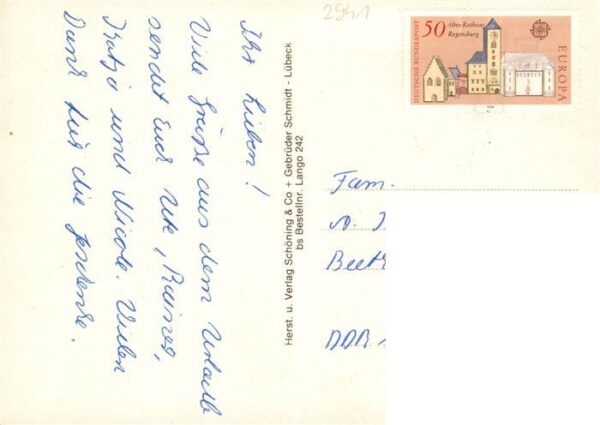 Ihr Lieben!
Viele Grüße aus dem Urlaub
sendet Euch Ute, Rainer,
Katja und Nicole. Vielen
Dank für die Geschenke.
Herst. u. Verlag Schöning & Co + Gebrüder Schmidt - Lübeck
bs Bestellnr. Lango 242
2941
DEUTSCHE BUNDESPOST
50 Altes Rathaus
Regensburg
EUROPA
Fam.
Beeth
DDR